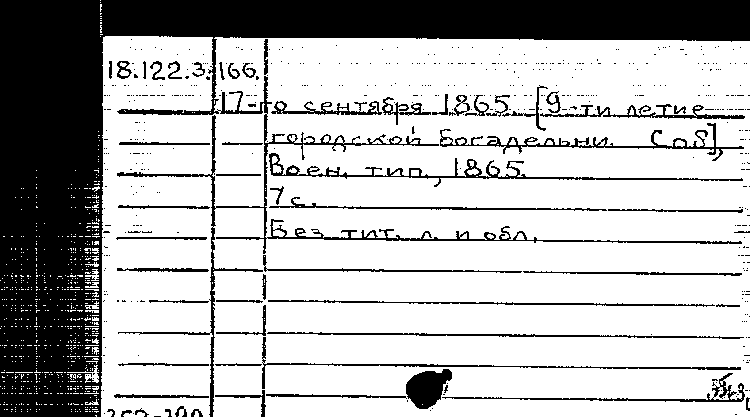 18.122.3.166.
17-го сентября 1865. [9-ти летие
городской богадельни. Спб],
Воен. тип., 1865.
7 с.
Без тит. л. и обл.